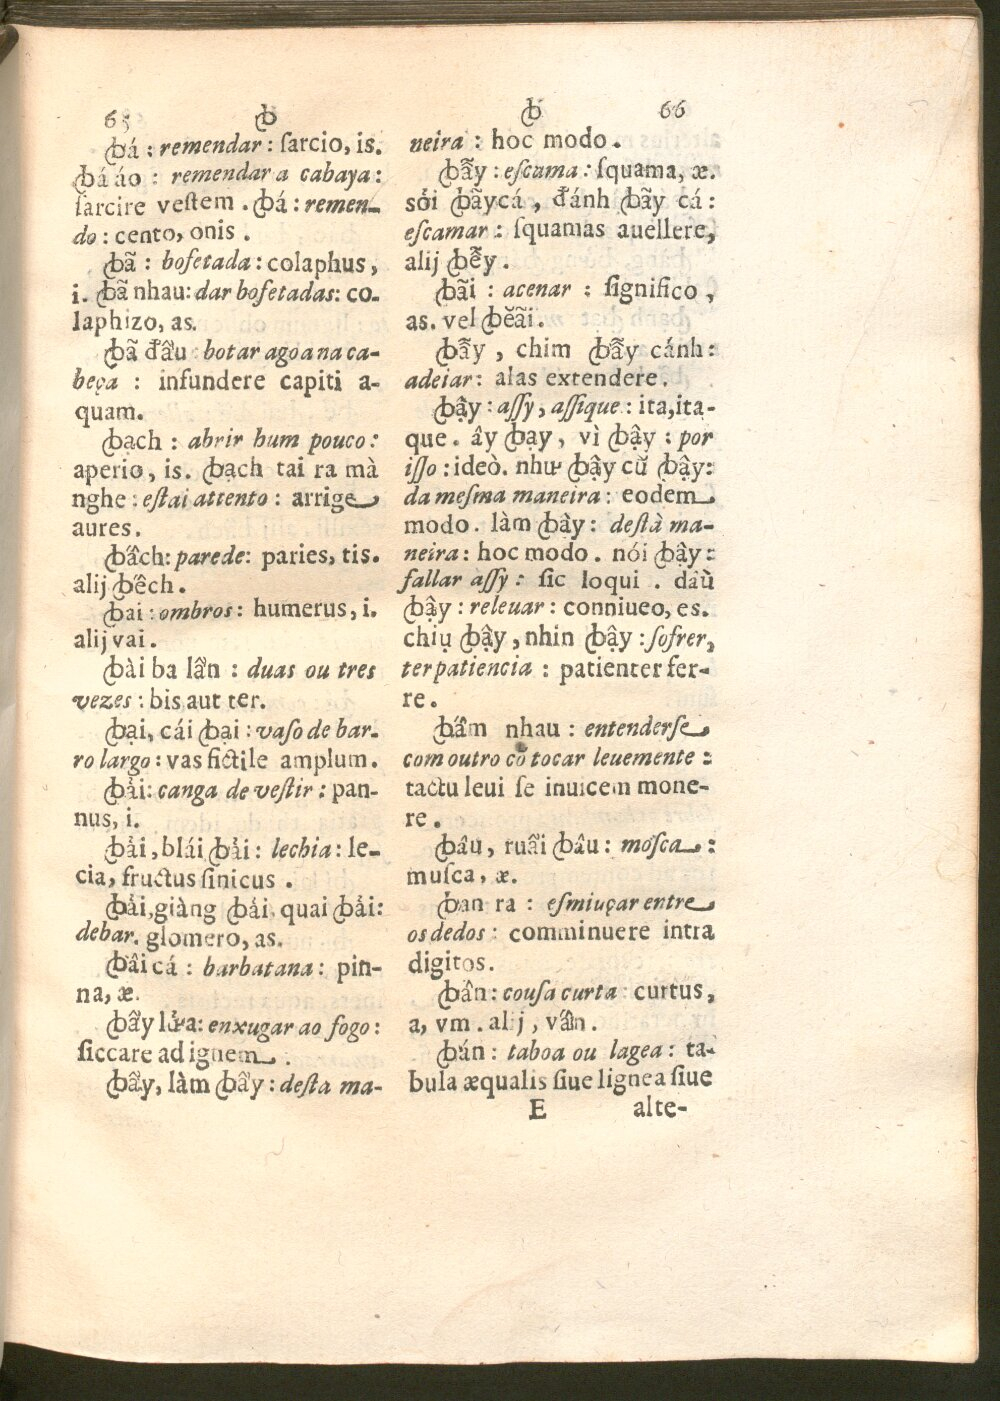 65 ꞗ
ꞗá : remendar : ſarcio, is.
ꞗá áo : remendar a cabaya :
ſarcire veſtem . ꞗá : remen-
do : cento, onis .
ꞗã : bofetada : colaphus,
i. ꞗã nhau: dar bofetadas: co-
laphizo, as.
ꞗã đầu : botar agoa na ca-
beça : infundere capiti a-
quam.
ꞗạch : abrir hum pouco :
aperio, is. ꞗạch tai ra mà
nghe : eſtai attento : arrige
aures.
ꞗách: parede: paries, tis.
alij ꞗếch .
ꞗai : ombros : humerus, i.
alij vai .
ꞗài ba lần : duas ou tres
vezes : bis aut ter.
ꞗại, cái ꞗại : vaſo de bar-
ro largo : vas fictile amplum.
ꞗải: canga de veſtir : pan-
nus, i.
ꞗải, blái ꞗải : lechia : le-
cia, fructus ſinicus .
ꞗải, giàng ꞗải. quai ꞗải:
debar. glomero, as.
ꞗâi cá : barbatana : pin-
na, æ.
ꞗẩy lửa: enxugar ao fogo :
ſiccare ad ignem .
ꞗẩy, làm ꞗẩy : deſta ma-
ꞗ 66
neira : hoc modo .
ꞗẫy : eſcama : ſquama, æ.
sỏi ꞗãy cá , đánh ꞗãy cá :
eſcamar : ſquamas auellere,
alij ꞗễy .
ꞗãi : acenar : ſignifico ,
as. vel ꞗĕãi.
ꞗẫy , chim ꞗẫy cánh :
adeiar : alas extendere .
ꞗậy : aſſy, aſſique : ita, ita-
que . ấy ꞗạy , vì ꞗậy : por
iſſo : ideò. như ꞗậy cũ ꞗậy:
da meſma maneira : eodem
modo . làm ꞗậy : deſtà ma-
neira : hoc modo . nói ꞗậy :
fallar aſſy : ſic loqui . dầù
ꞗậy : releuar : conniueo, es.
chiụ ꞗậy , nhin ꞗậy : ſofrer,
ter patiencia : patienter fer-
re .
ꞗấm nhau : entenderſe
com outro cõ tocar leuemente :
tactu leui ſe inuicem mone-
re .
ꞗâu, ruãi ꞗâu : moſca :
muſca, æ.
ꞗan ra : eſmiuçar entre
os dedos : comminuere intra
digitos.
ꞗắn : couſa curta curtus,
a, vm . alij , vắn .
ꞗán : taboa ou lagea : ta-
bula æqualis ſiue lignea ſiue
E alte-